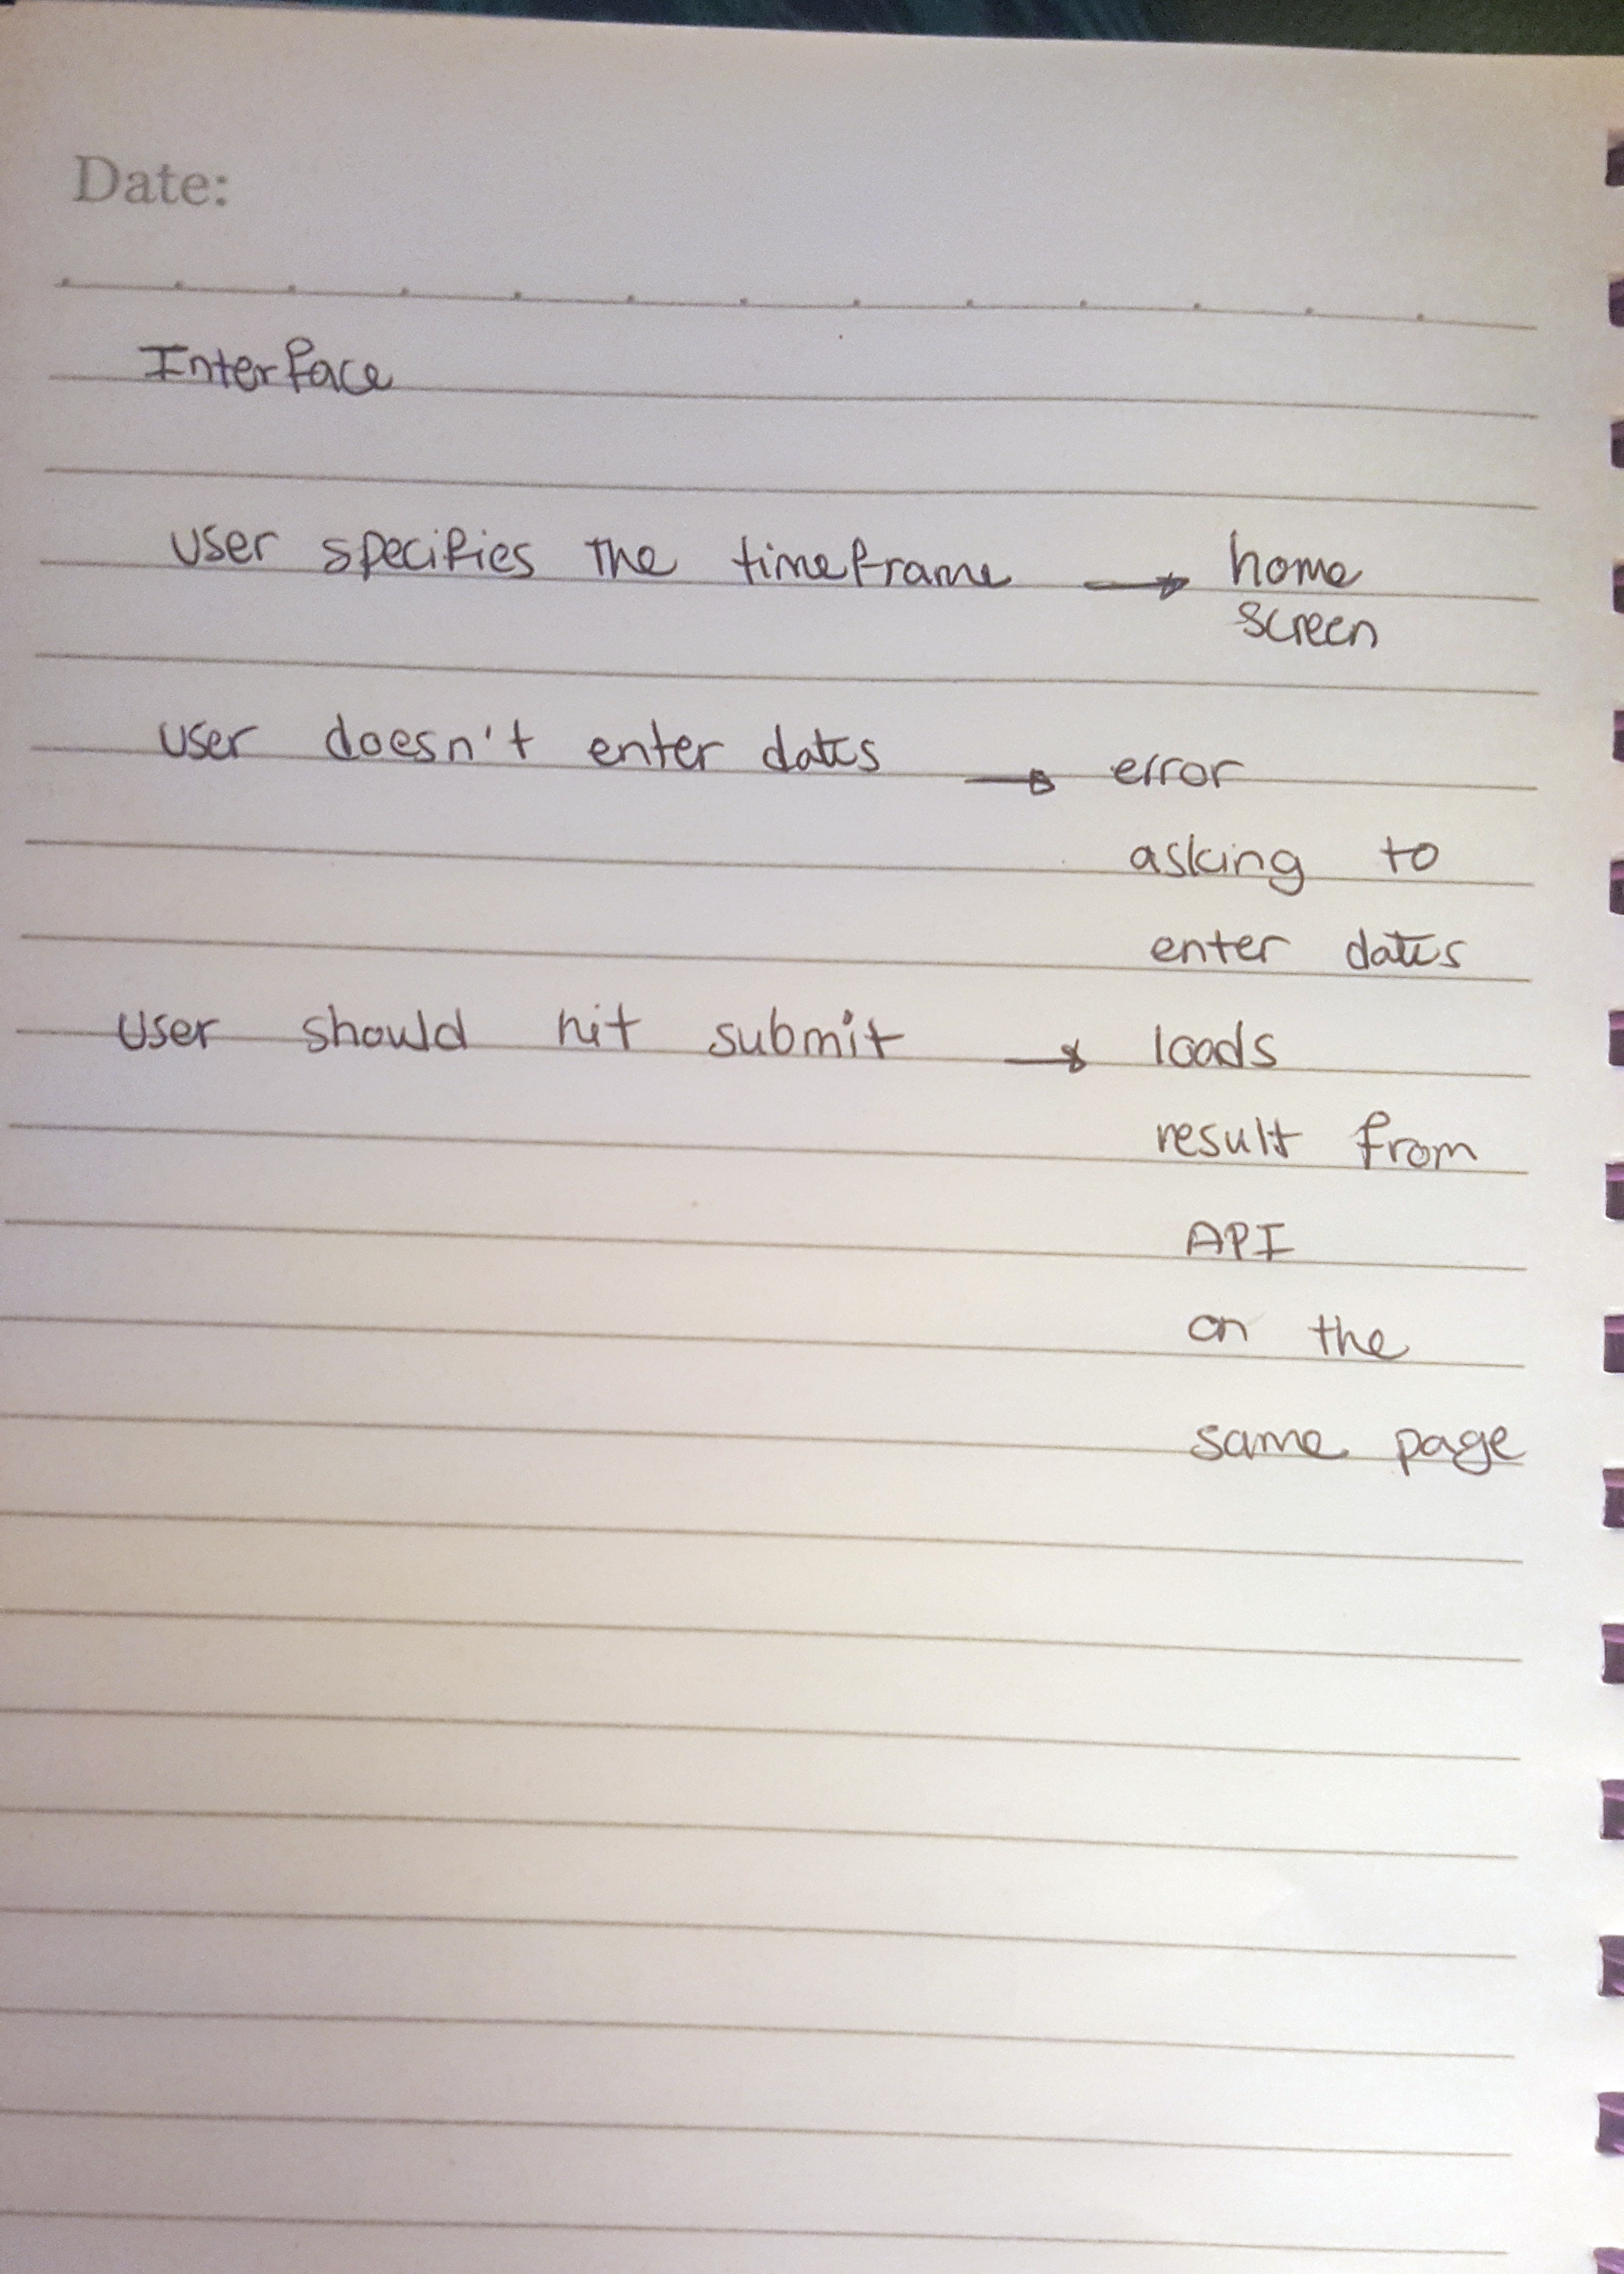 Date:
Interface
user specifies the timeframe → home
screen
user doesn't enter dates → error
asking to
enter dates
user should hit submit → loads
result from
API
on the
same page